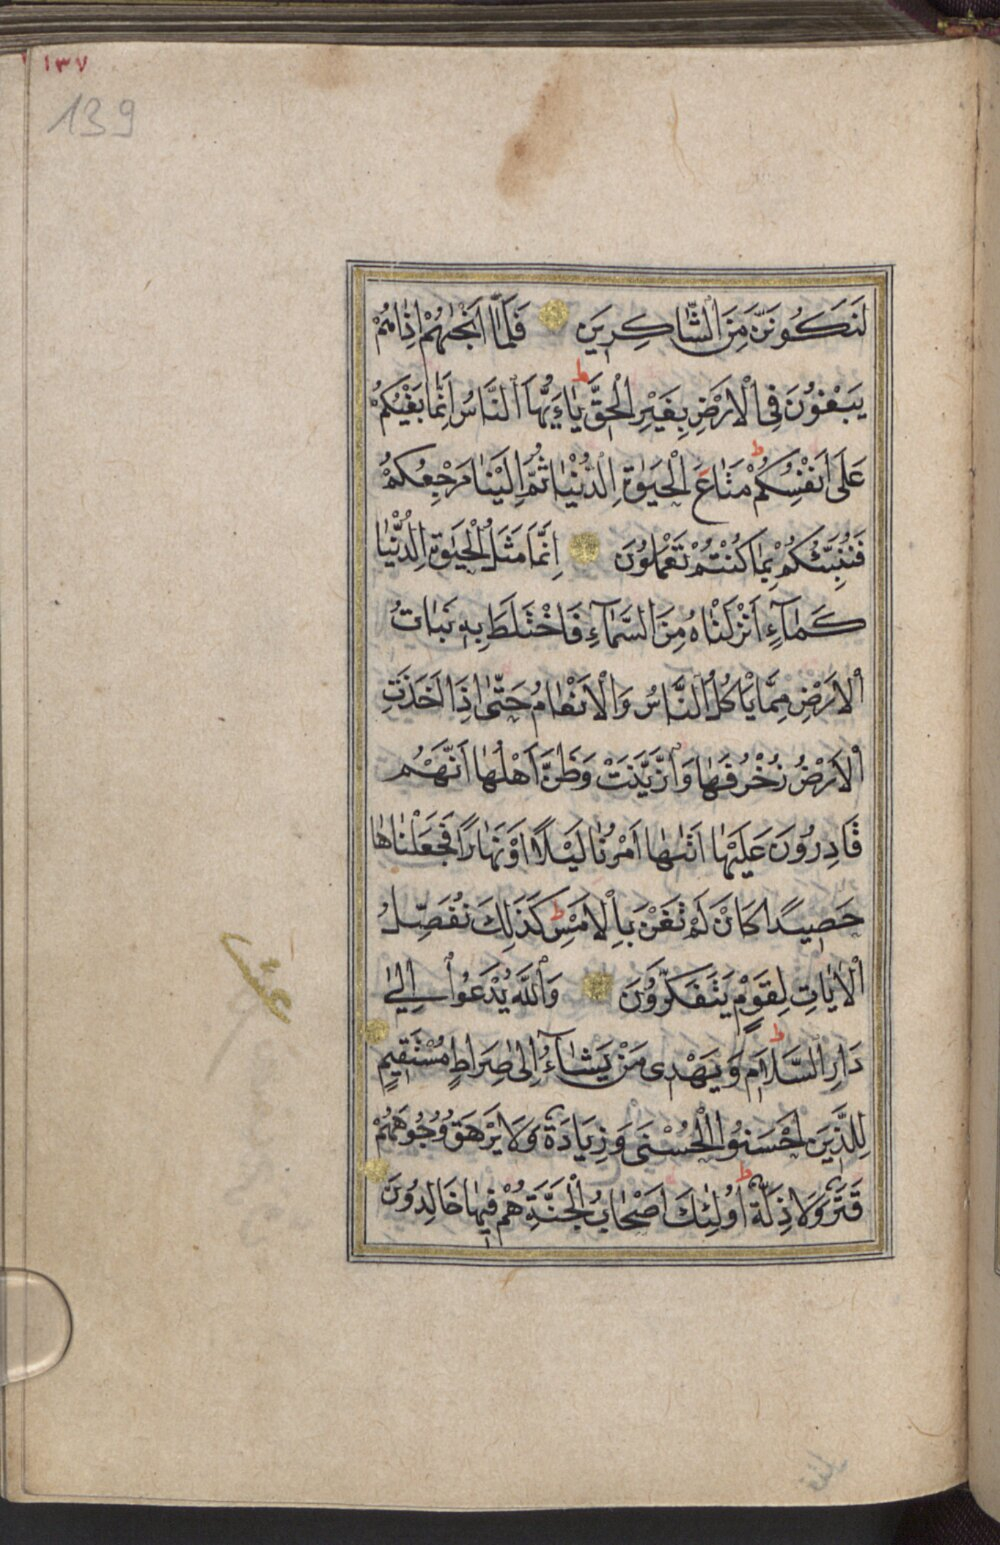 ١٣٧
139
لَنَكُونَنَّ مِنَ الشَّاكِرِينَ فَلَمَّا اَنْجٰيهُمْ اِذَا هُمْ
يَبْغُونَ فِى الْاَرْضِ بِغَيْرِ الْحَقِّ ط يَاءَيُّهَا النَّاسُ اِنَّمَا بَغْيُكُمْ
عَلَى اَنْفُسِكُمْ ط مَتَاعَ الْحَيٰوةِ الدُّنْيَا ثُمَّ اِلَيْنَا مَرْجِعُكُمْ
فَنُنَبِّئُكُمْ بِمَا كُنْتُمْ تَعْمَلُونَ اِنَّمَا مَثَلُ الْحَيٰوةِ الدُّنْيَا
كَمَآءٍ اَنْزَلْنَاهُ مِنَ السَّمَآءِ فَاخْتَلَطَ بِهِ نَبَاتُ
الْاَرْضِ مِمَّا يَاْكُلُ النَّاسُ وَالْاَنْعَامُ حَتّٰى اِذَا اَخَذَتِ
الْاَرْضُ زُخْرُفَهَا وَازَّيَّنَتْ وَظَنَّ اَهْلُهَا اَنَّهُمْ
قَادِرُونَ عَلَيْهَا اَتٰيهَا اَمْرُنَا لَيْلًا اَوْ نَهَارًا فَجَعَلْنَاهَا
حَصِيدًا كَاَنْ لَمْ تَغْنَ بِالْاَمْسِ ط كَذَلِكَ نُفَصِّلُ
الْاٰيَاتِ لِقَوْمٍ يَتَفَكَّرُونَ وَاللّٰهُ يَدْعُوا اِلٰى
دَارِ السَّلَامِ ط وَيَهْدِى مَنْ يَشَآءُ اِلٰى صِرَاطٍ مُسْتَقِيمٍ
لِلَّذِينَ اَحْسَنُوا الْحُسْنٰى وَزِيَادَةٌ وَلَا يَرْهَقُ وُجُوهَهُمْ
قَتَرٌ وَلَا ذِلَّةٌ ط اُولٰئِكَ اَصْحَابُ الْجَنَّةِ هُمْ فِيهَا خَالِدُونَ
عشر